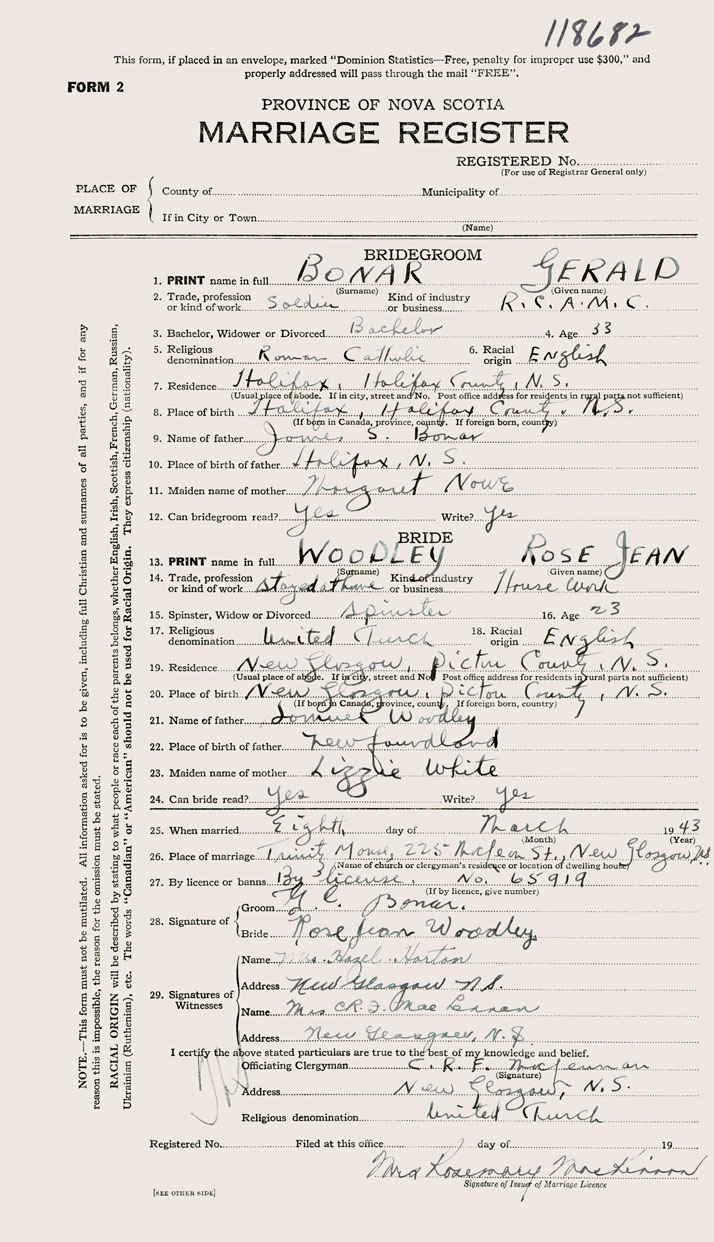 118682
This form, if placed in an envelope, marked "Dominion Statistics—Free, penalty for improper use $300," and
properly addressed will pass through the mail "FREE".
FORM 2
PROVINCE OF NOVA SCOTIA
MARRIAGE REGISTER
REGISTERED No.
(For use of Registrar General only)
PLACE OF MARRIAGE
County of Municipality of
If in City or Town
(Name)
BRIDEGROOM
1. PRINT name in full BONAR GERALD
(Surname) (Given name)
2. Trade, profession or kind of work Soldier Kind of industry or business R.C.A.M.C.
3. Bachelor, Widower or Divorced Bachelor 4. Age 33
5. Religious denomination Roman Catholic 6. Racial origin English
7. Residence Halifax, Halifax County, N.S.
(Usual place of abode. If in city, street and No. Post office address for residents in rural parts not sufficient)
8. Place of birth Halifax, Halifax County, N.S.
(If born in Canada, province, county. If foreign born, country)
9. Name of father James S. Bonar
10. Place of birth of father Halifax, N.S.
11. Maiden name of mother Margaret Nowe
12. Can bridegroom read? Yes Write? Yes
BRIDE
13. PRINT name in full WOODLEY ROSE JEAN
(Surname) (Given name)
14. Trade, profession or kind of work stayed at home Kind of industry or business House Work
15. Spinster, Widow or Divorced Spinster 16. Age 23
17. Religious denomination United Church 18. Racial origin English
19. Residence New Glasgow, Pictou County, N.S.
(Usual place of abode. If in city, street and No. Post office address for residents in rural parts not sufficient)
20. Place of birth New Glasgow, Pictou County, N.S.
(If born in Canada, province, county. If foreign born, country)
21. Name of father Samuel Woodley
22. Place of birth of father Newfoundland
23. Maiden name of mother Lizzie White
24. Can bride read? Yes Write? Yes
25. When married Eighth day of March 1943
(Month) (Year)
26. Place of marriage Trinity Manse, 225 St., New Glasgow, N.S.
(Name of church or clergyman's residence or location of dwelling house)
27. By licence or banns By license, No. 65919
(If by licence, give number)
28. Signature of
Groom G. Bonar.
Bride Rose Jean Woodley
29. Signatures of Witnesses
Name Mrs. Hazel Horton
Address New Glasgow N.S.
Name Mrs C.R.F. MacLennan
Address New Glasgow, N.S
I certify the above stated particulars are true to the best of my knowledge and belief.
Officiating Clergyman C. R. F. MacLennan
(Signature)
Address New Glasgow, N.S.
Religious denomination United Church
Registered No. Filed at this office day of 19
Mrs Rosemary MacKinnon
Signature of Issuer of Marriage Licence
[SEE OTHER SIDE]
NOTE.—This form must not be mutilated. All information asked for is to be given, including full Christian and surnames of all parties, and if for any
reason this is impossible, the reason for the omission must be stated.
RACIAL ORIGIN will be described by stating to what people or race each of the parents belongs, whether English, Irish, Scottish, French, German, Russian,
Ukrainian (Ruthenian), etc. The words "Canadian" or "American" should not be used for Racial Origin. They express citizenship (nationality).